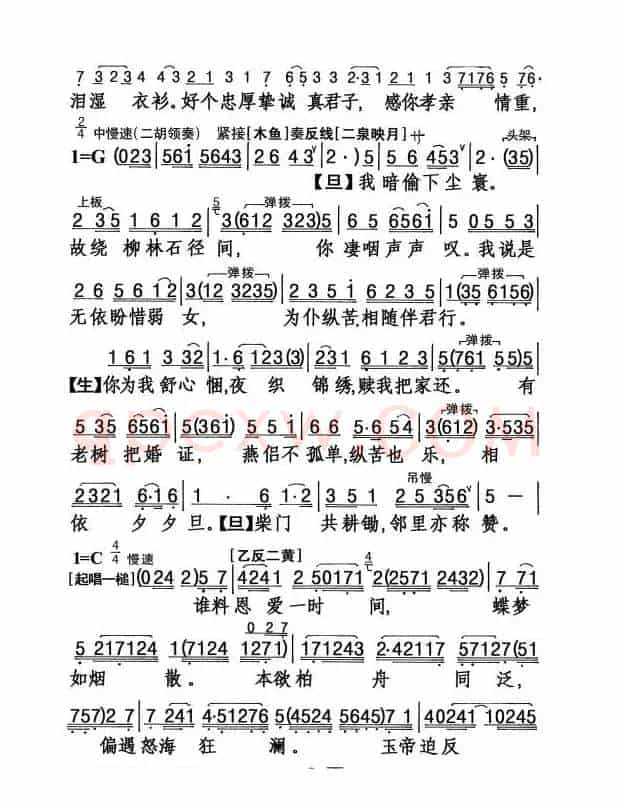 7 3234 43231 231 765 33 2·321 1 3 7176 5 76·
泪湿 衣衫。好个忠厚挚诚 真君子，感你孝亲 情重，
2/4 中慢速(二胡领奏) 紧接[木鱼]奏反线[二泉映月]サ 头架
1=G (023 | 561 5643 | 26 43 | 2·) 5 | 56 453 | 2· (35)
【旦】我 暗偷下尘 寰。
上板 弹拨
2 35 16 12 | 3(612 323)5 | 65 6561 | 5 05 53
故绕 柳林石径 间， 你 凄咽声声 叹。我说是
弹拨 弹拨
26 56 12 | 3(12 3235) | 2 35 16 12 | 1(35 6156)
无依盼惜弱 女， 为仆纵苦,相随伴君行。
弹拨
161 3 32 | 1·6 123(3) | 231 6123 | 5(761 55)5
【生】你为我 舒心 悃,夜 织 锦绣,赎我把家还。 有
弹拨
5 35 6561 | 5(361) 61 | 66 3·5654 | 3(612) 3·535
老树 把婚 证， 燕侣不 孤单,纵苦也 乐， 相
吊慢
2321 6·16 | 6 1·2 | 3 051 25356 | 5 —
依 夕夕旦。【旦】柴门 共耕锄,邻里亦称 赞。
1=C 4/4 慢速 [乙反二黄]
[起唱一槌] (024 2)57 | 4241 2 50171 2(2571 2432) | 7 71
谁料恩 爱一时 间， 蝶梦
0 2 7
5 217124 1(7124 1271) | 171243 2·42117 57127(51
如烟 散。 本欲柏 舟 同 泛，
757)27 | 7 241 4·51276 5(4524 5645)71 | 40241 10245
偏遇怒海 狂 澜。 玉帝迫反
qpcxw.COM